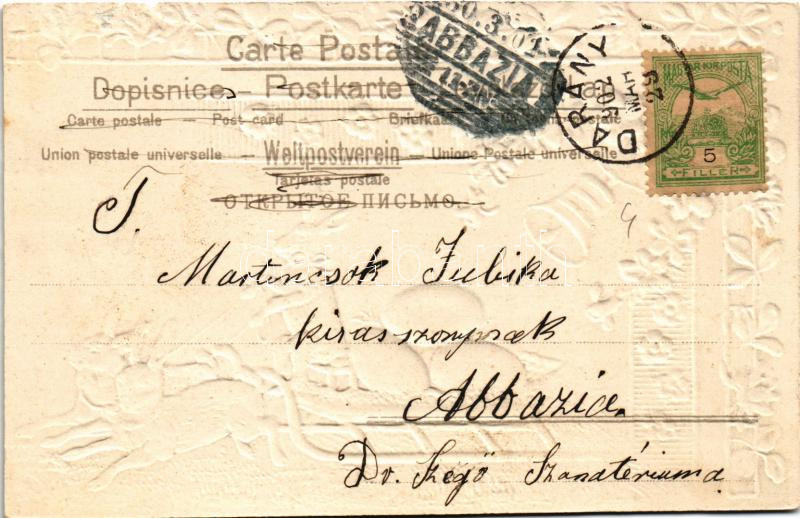 Carte Posta
Dopisnice – Postkarte
Carte postale – Post card – Briefkaart
Union postale universelle – Weltpostverein – Union Postale universelle
Tarjetas postale
ОТКРЫТОЕ ПИСЬМО.
30.3.02
ABBAZIA
DARÁNY
902
MAR
29
MAGYAR KIR. POSTA
5
FILLÉR
T.
Martincsok Juliska
kisasszonynak
Abbazia.
Dr. Szegő Szanatóriuma